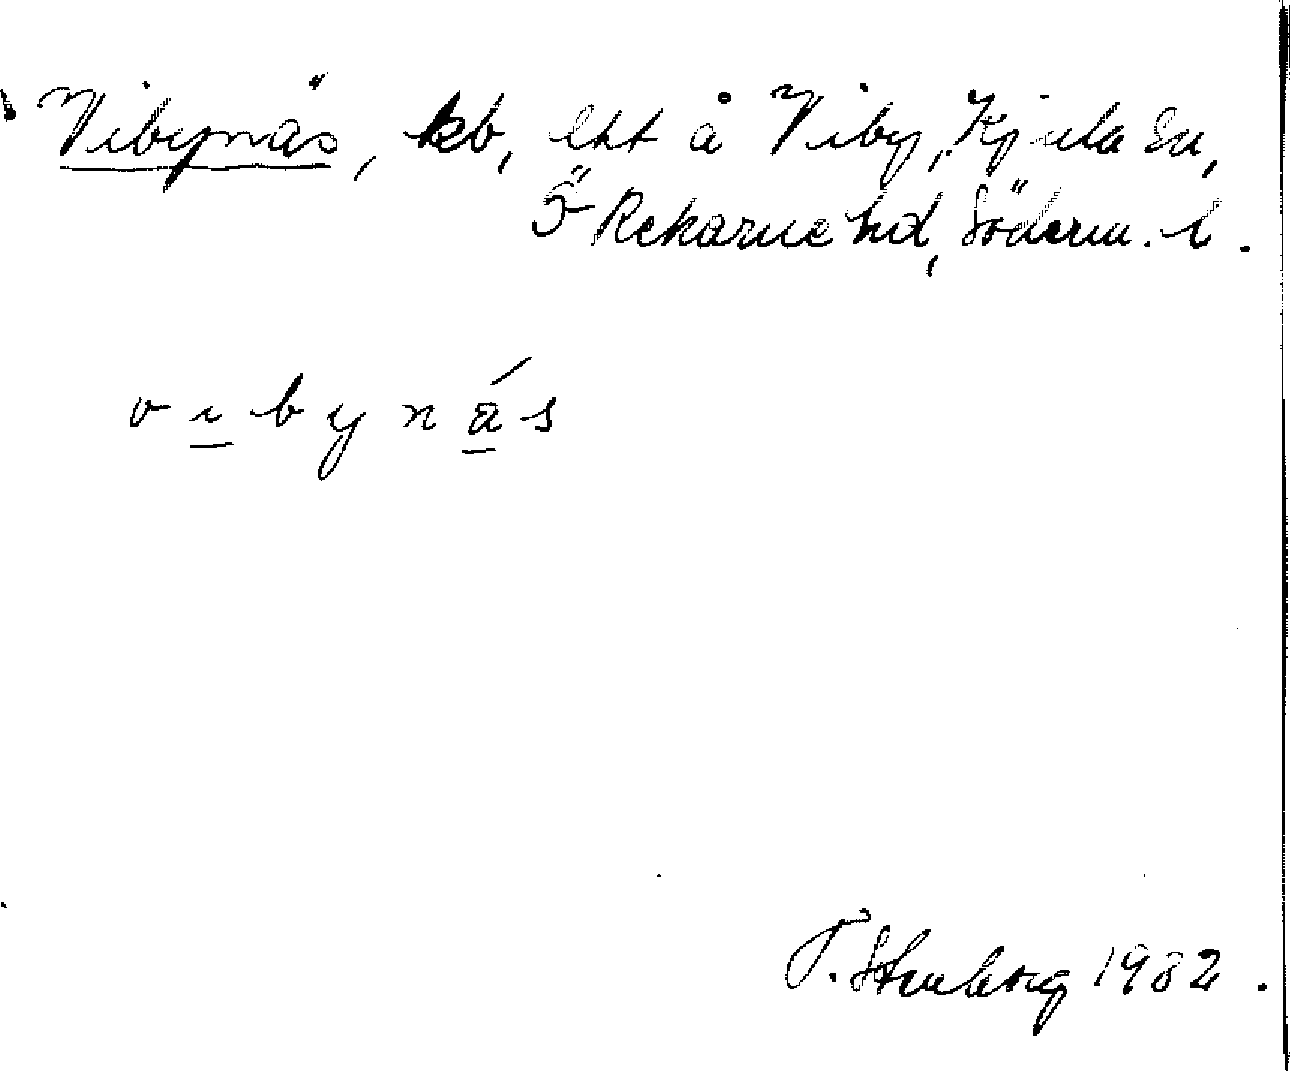 Vibynäs, kb, lht å Viby, Kjula sn,
Ö Rekarne hd, Söderm. l.
v i b y n ä́ s
T. Stenberg 1932.